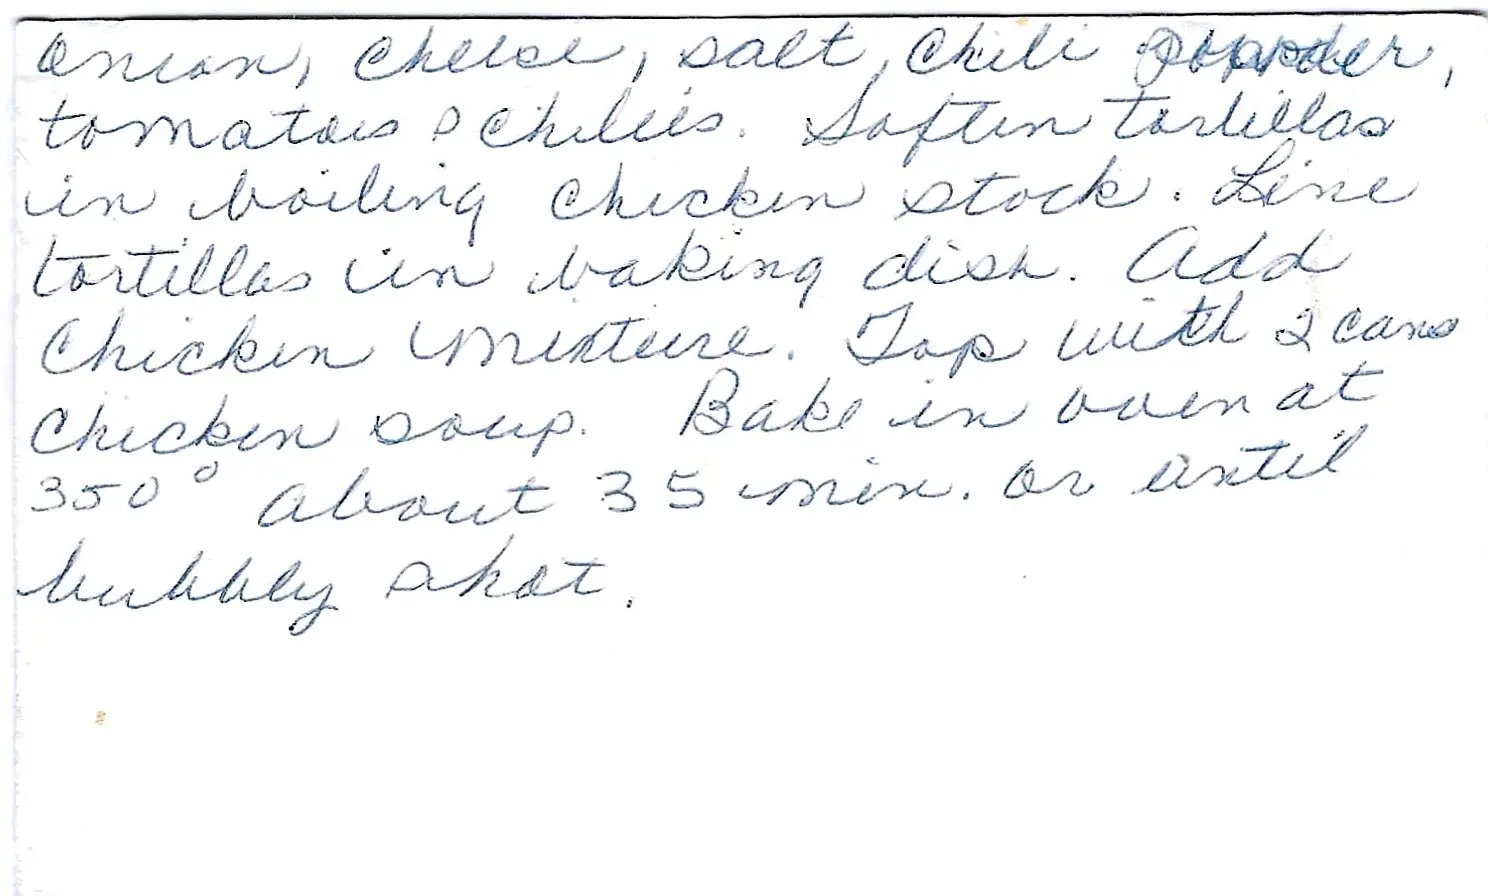 onion, cheese, salt, chili powder,
tomatoes & chilies. Soften tortillas
in boiling chicken stock. Line
tortillas in baking dish. Add
chicken mixture. Top with 2 cans
chicken soup. Bake in oven at
350° about 35 min. or until
bubbly & hot.